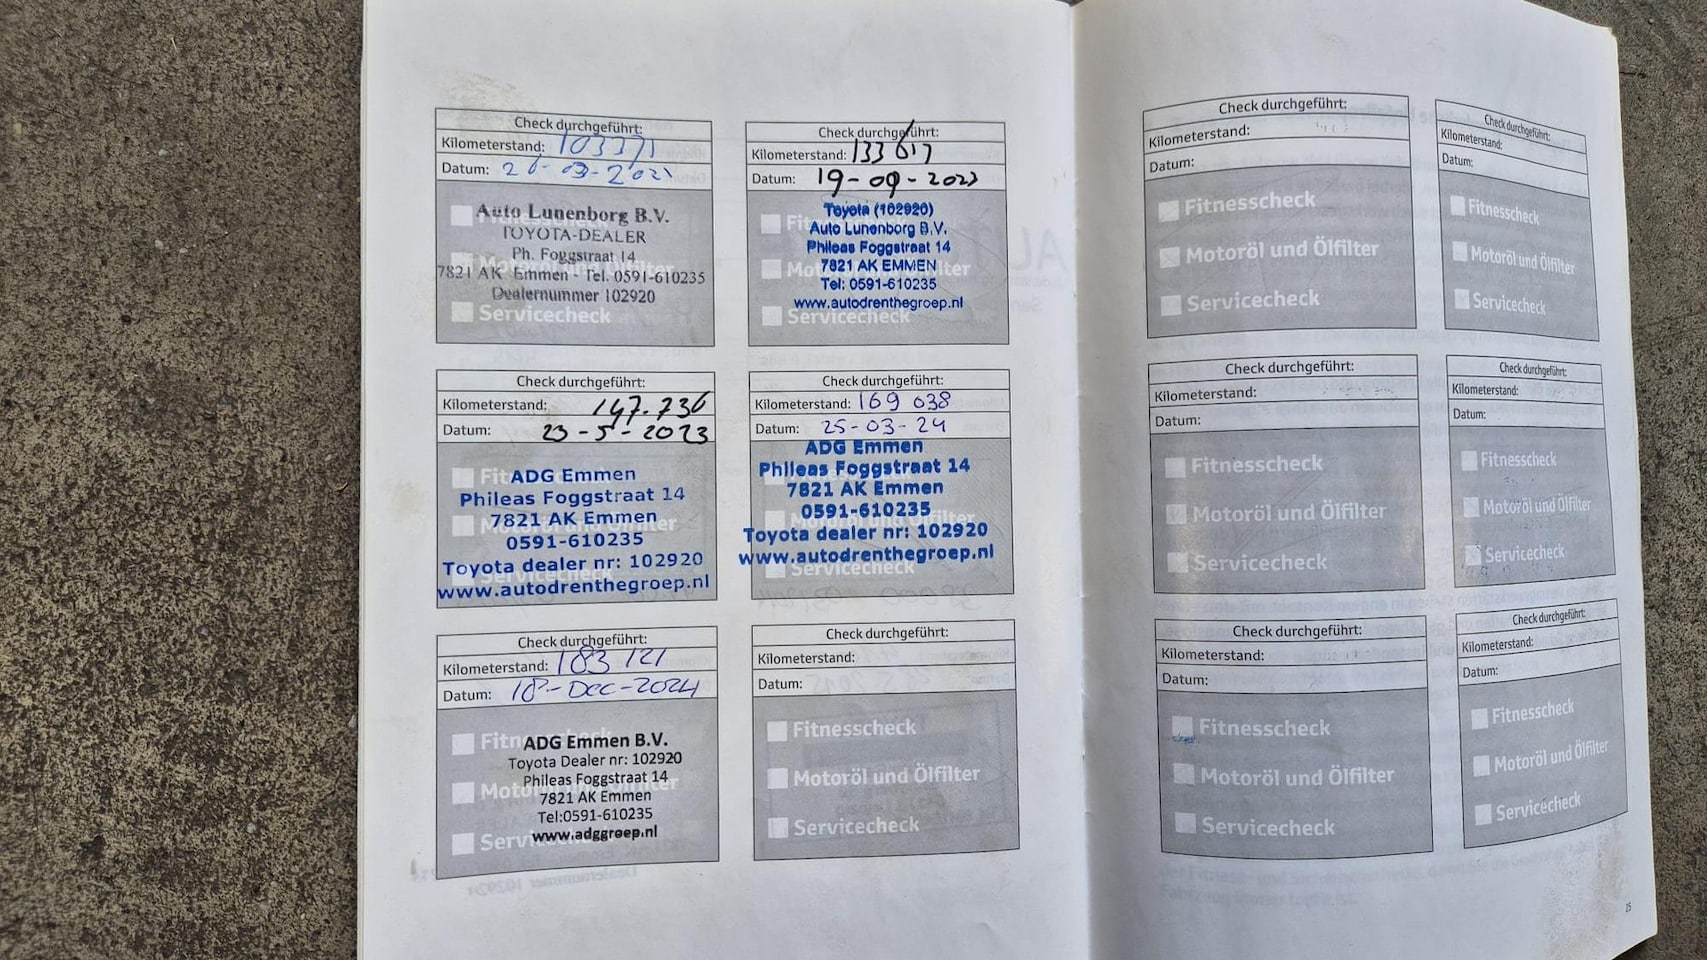 Check durchgeführt:
Kilometerstand: 103371
Datum: 26-03-2021
Auto Lunenborg B.V.
TOYOTA-DEALER
Ph. Foggstraat 14
7821 AK Emmen - Tel. 0591-610235
Dealernummer 102920
Servicecheck
Check durchgeführt:
Kilometerstand: 133617
Datum: 19-09-2022
Toyota (102920)
Auto Lunenborg B.V.
Phileas Foggstraat 14
7821 AK EMMEN
Tel: 0591-610235
www.autodrenthegroep.nl
Servicecheck
Check durchgeführt:
Kilometerstand: 147.736
Datum: 23-5-2023
ADG Emmen
Phileas Foggstraat 14
7821 AK Emmen
0591-610235
Toyota dealer nr: 102920
www.autodrenthegroep.nl
Check durchgeführt:
Kilometerstand: 169 038
Datum: 25-03-24
ADG Emmen
Phileas Foggstraat 14
7821 AK Emmen
0591-610235
Toyota dealer nr: 102920
www.autodrenthegroep.nl
Servicecheck
Check durchgeführt:
Kilometerstand: 183 121
Datum: 18-Dec-2024
ADG Emmen B.V.
Toyota Dealer nr: 102920
Phileas Foggstraat 14
7821 AK Emmen
Tel:0591-610235
www.adggroep.nl
Check durchgeführt:
Kilometerstand:
Datum:
Fitnesscheck
Motoröl und Ölfilter
Servicecheck
Check durchgeführt:
Kilometerstand:
Datum:
Fitnesscheck
Motoröl und Ölfilter
Servicecheck
Check durchgeführt:
Kilometerstand:
Datum:
Fitnesscheck
Motoröl und Ölfilter
Servicecheck
Check durchgeführt:
Kilometerstand:
Datum:
Fitnesscheck
Motoröl und Ölfilter
Servicecheck
Check durchgeführt:
Kilometerstand:
Datum:
Fitnesscheck
Motoröl und Ölfilter
Servicecheck
Check durchgeführt:
Kilometerstand:
Datum:
Fitnesscheck
Motoröl und Ölfilter
Servicecheck
Check durchgeführt:
Kilometerstand:
Datum:
Fitnesscheck
Motoröl und Ölfilter
Servicecheck
25